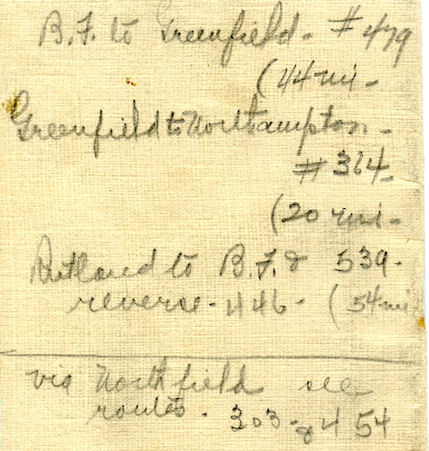 B.F. to Greenfield - #479
(44 mi -
Greenfield to Northampton -
#364 -
(20 mi -
Rutland to B.F. & 539 -
reverse - 446 - (54 mi
via Northfield see
routes - 303 - & 454